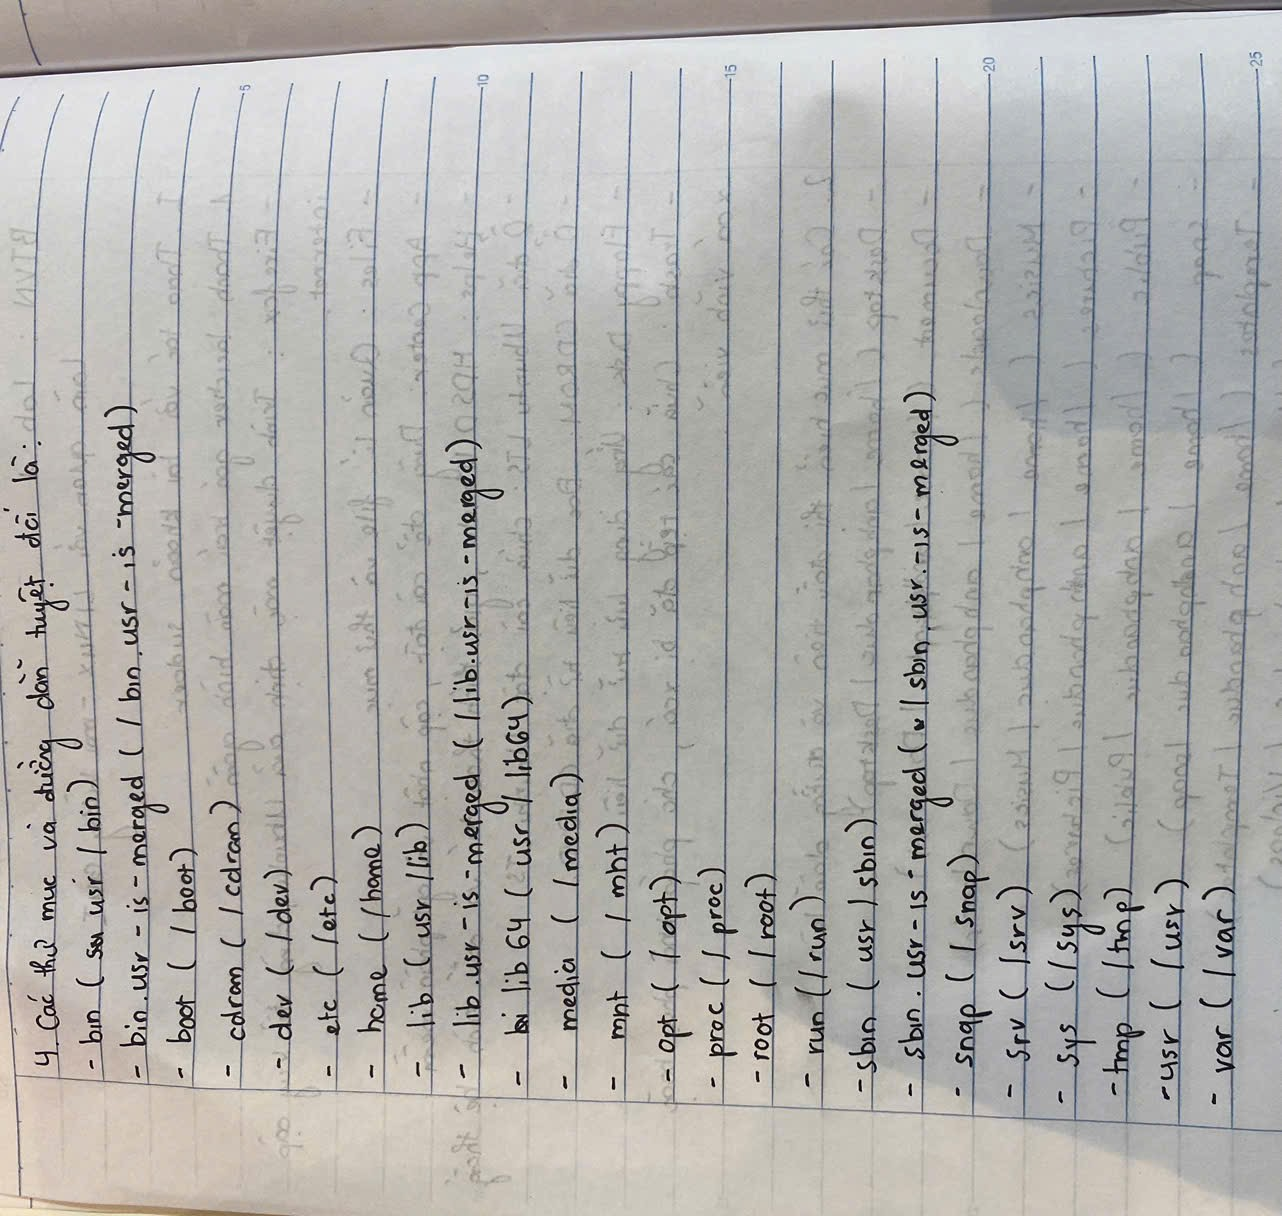 4, Các thư mục và đường dẫn tuyệt đối là:
- bin ( usr / bin)
- bin.usr - is - merged ( / bin.usr - is - merged)
- boot ( / boot)
- cdrom ( / cdrom)
- dev ( / dev)
- etc ( / etc)
- home ( / home)
- lib ( usr / lib)
- lib.usr - is - merged ( / lib.usr - is - merged)
- lib 64 ( usr / lib64)
- media ( / media)
- mnt ( / mnt)
- opt ( / opt)
- proc ( / proc)
- root ( / root)
- run ( / run)
- sbin ( usr / sbin)
- sbin.usr - is - merged ( / sbin.usr - is - merged)
- snap ( / snap)
- srv ( / srv)
- sys ( / sys)
- tmp ( / tmp)
- usr ( / usr)
- var ( / var)
5
10
15
20
25